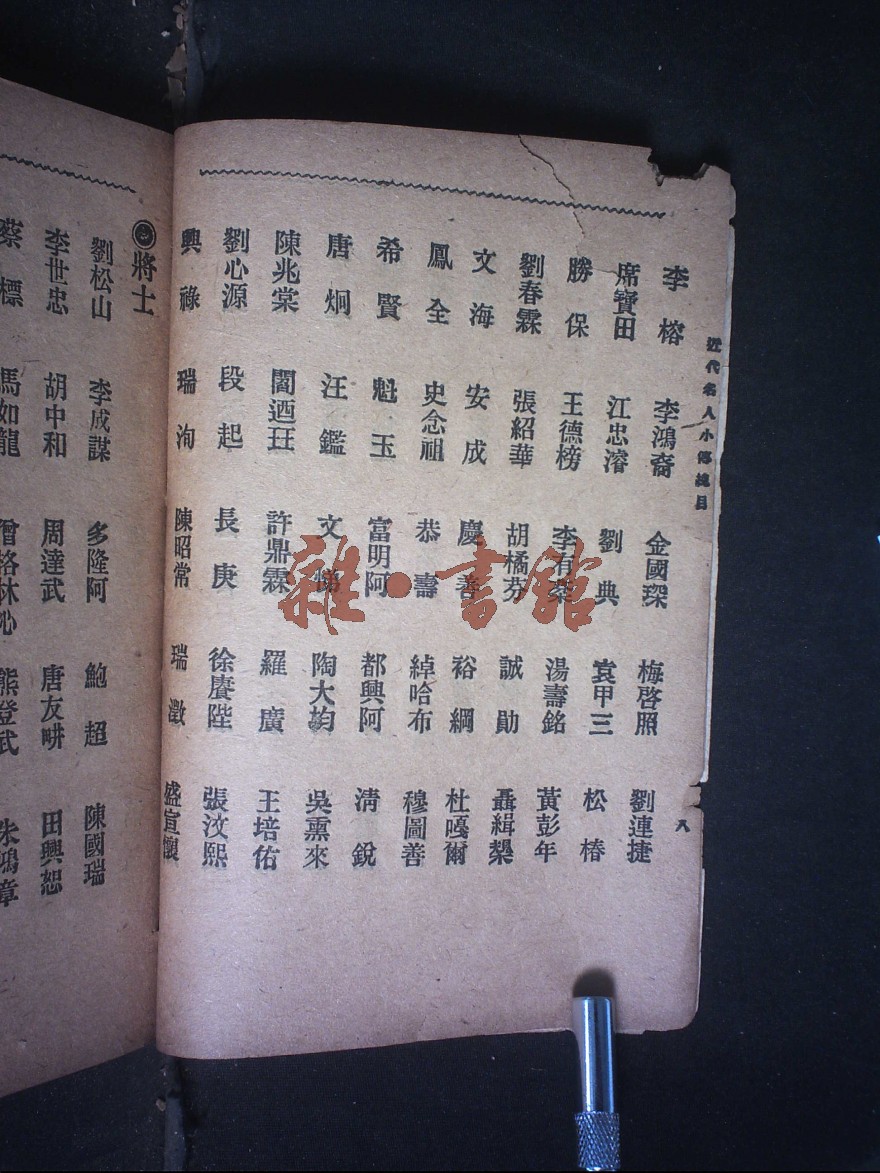 近代名人小傳總目
八
李榕 李鴻裔 金國琛 梅啓照 劉連捷
席寶田 江忠濬 劉典 袁甲三 松椿
勝保 王德榜 李有棻 湯壽銘 黃彭年
劉春霖 張紹華 胡橘芬 誠勛 聶緝槼
文海 安成 慶善 裕綱 杜嘎爾
鳳全 史念祖 恭壽 綽哈布 穆圖善
希賢 魁玉 富明阿 都興阿 清銳
唐炯 汪鑑 文悌 陶大均 吳熏來
陳兆棠 閻迺珏 許鼎霖 羅廣 王培佑
劉心源 段起 長庚 徐賡陛 張汶熙
興祿 瑞洵 陳昭常 瑞澂 盛宣懷
將士
劉松山 李成謀 多隆阿 鮑超 陳國瑞
李世忠 胡中和 周達武 唐友畊 田興恕
蔡標 馬如龍 僧格林沁 熊登武 朱鴻章
雜·書館